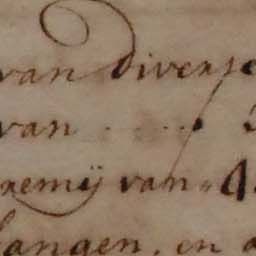 van diverse
van . . . . .
remÿ van
langen, en a